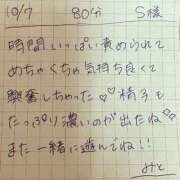 10/7 80分 S様
時間いっぱい責められて
めちゃくちゃ気持ち良くて
興奮しちゃった♡♡精子も
たっぷり濃いのが出たね♡
また一緒に遊んでね!!
みと